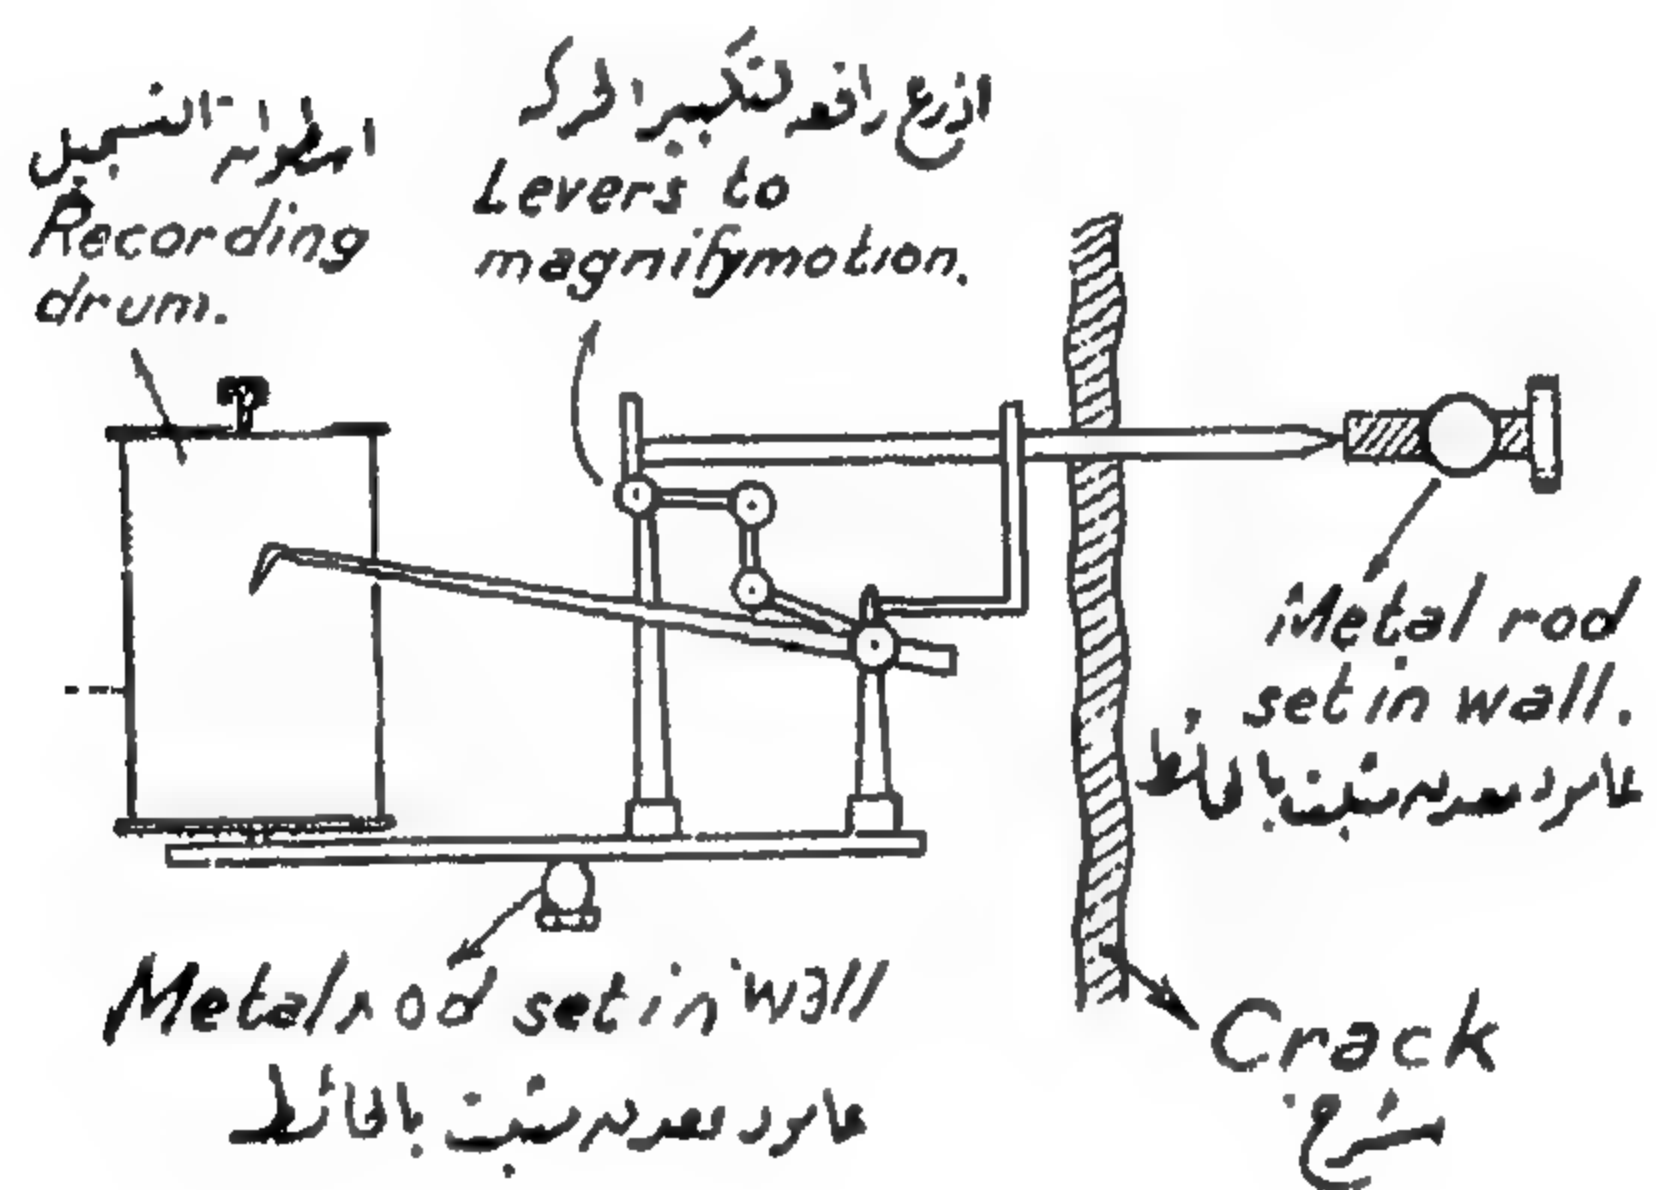 اسطوانة التسجيل
Recording
drum.
اذرع رافعه لتكبير الحركه
Levers to
magnifymotion.
Metal rod
set in wall.
عامود معدنى مثبت بالحائط
Metal rod set in wall
عامود معدنى مثبت بالحائط
Crack
شرخ